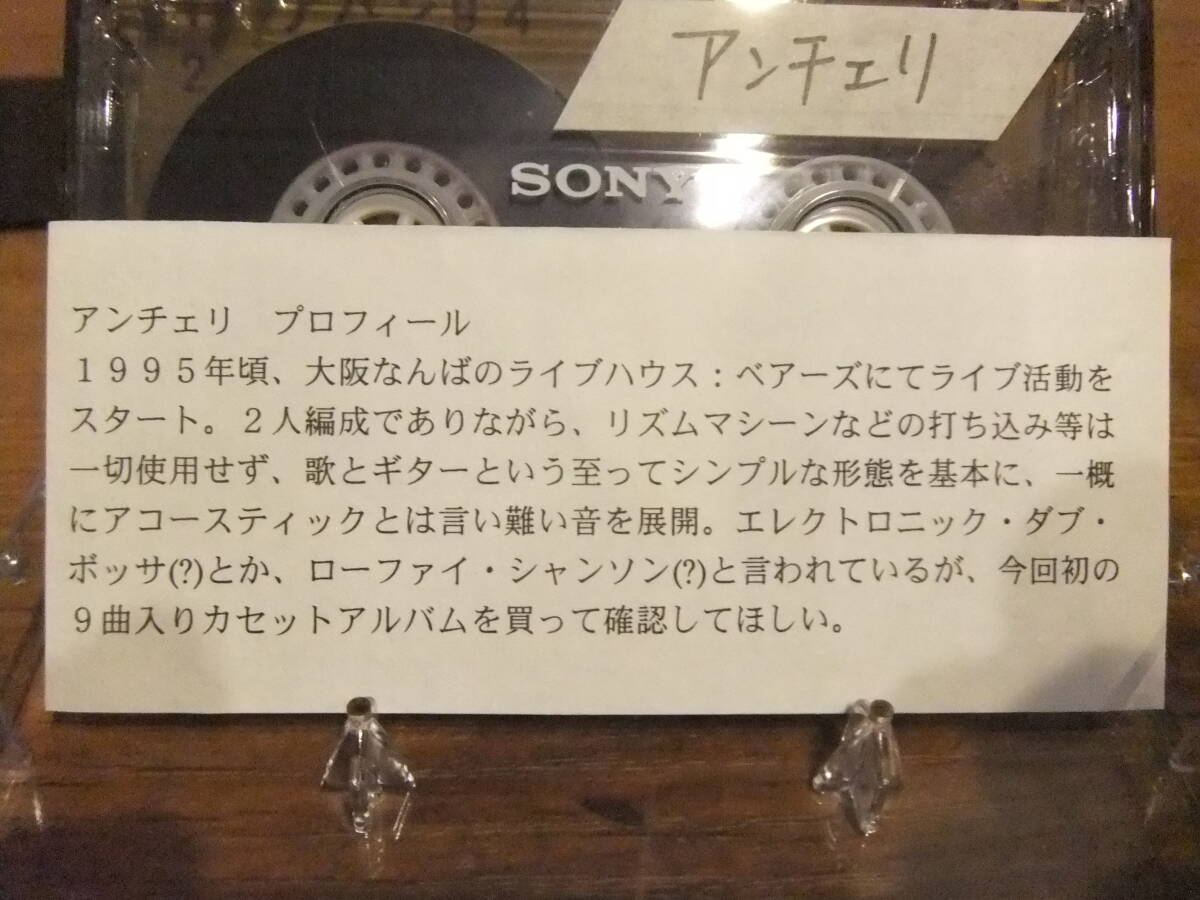 アンチェリ
SONY
アンチェリ　プロフィール
１９９５年頃、大阪なんばのライブハウス：ベアーズにてライブ活動を
スタート。２人編成でありながら、リズムマシーンなどの打ち込み等は
一切使用せず、歌とギターという至ってシンプルな形態を基本に、一概
にアコースティックとは言い難い音を展開。エレクトロニック・ダブ・
ボッサ(?)とか、ローファイ・シャンソン(?)と言われているが、今回初の
９曲入りカセットアルバムを買って確認してほしい。